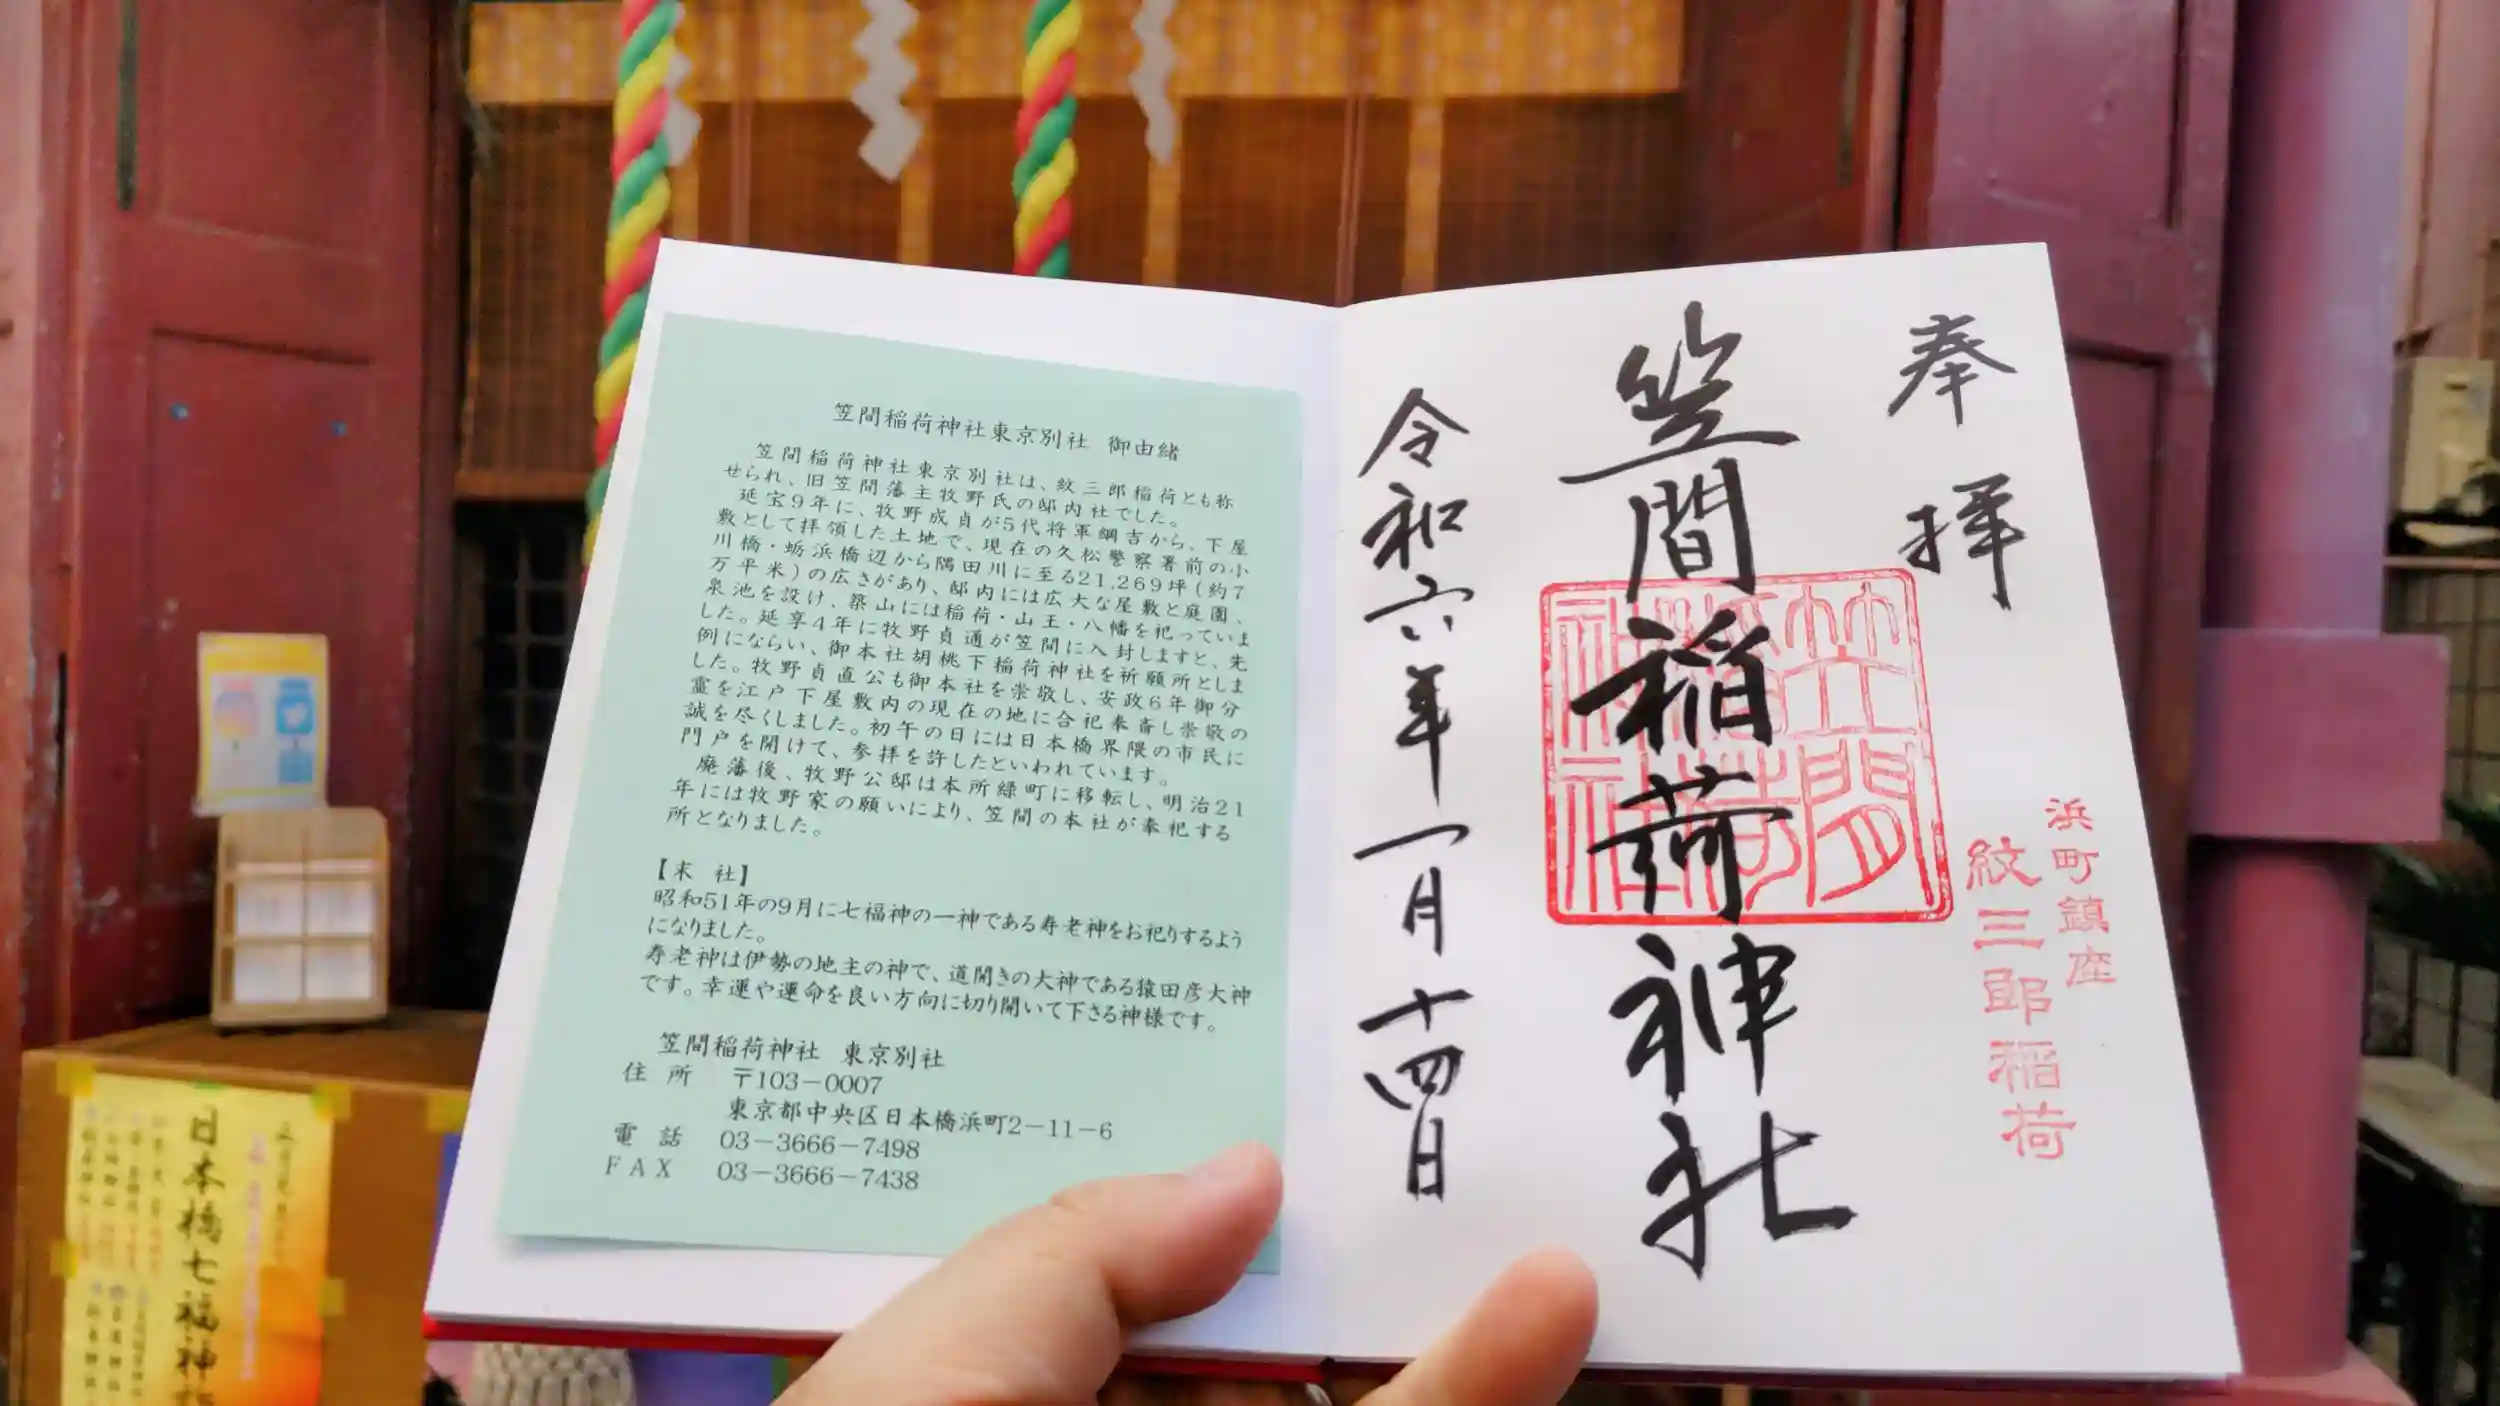 笠間稲荷神社東京別社 御由緒
笠間稲荷神社東京別社は、紋三郎稲荷とも称
せられ、旧笠間藩主牧野氏の邸内社でした。
延宝9年に、牧野成貞が5代将軍綱吉から、下屋
敷として拝領した土地で、現在の久松警察署前の小
川橋・蛎浜橋辺から隅田川に至る21,269坪(約7
万平米)の広さがあり、邸内には広大な屋敷と庭園、
泉池を設け、築山には稲荷・山王・八幡を祀っていま
した。延享4年に牧野貞通が笠間に入封しますと、先
例にならい、御本社胡桃下稲荷神社を祈願所としま
した。牧野貞直公も御本社を崇敬し、安政6年御分
霊を江戸下屋敷内の現在の地に合祀奉斎し崇敬の
誠を尽くしました。初午の日には日本橋界隈の市民に
門戸を開けて、参拝を許したといわれています。
廃藩後、牧野公邸は本所緑町に移転し、明治21
年には牧野家の願いにより、笠間の本社が奉祀する
所となりました。
【末 社】
昭和51年の9月に七福神の一神である寿老神をお祀りするよう
になりました。
寿老神は伊勢の地主の神で、道開きの大神である猿田彦大神
です。幸運や運命を良い方向に切り開いて下さる神様です。
笠間稲荷神社 東京別社
住 所 〒103-0007
東京都中央区日本橋浜町2-11-6
電 話 03-3666-7498
FAX 03-3666-7438
奉拝
浜町鎮座
紋三郎稲荷
笠間稲荷神社
笠間稲荷神社
令和六年一月十四日
日本橋七福神